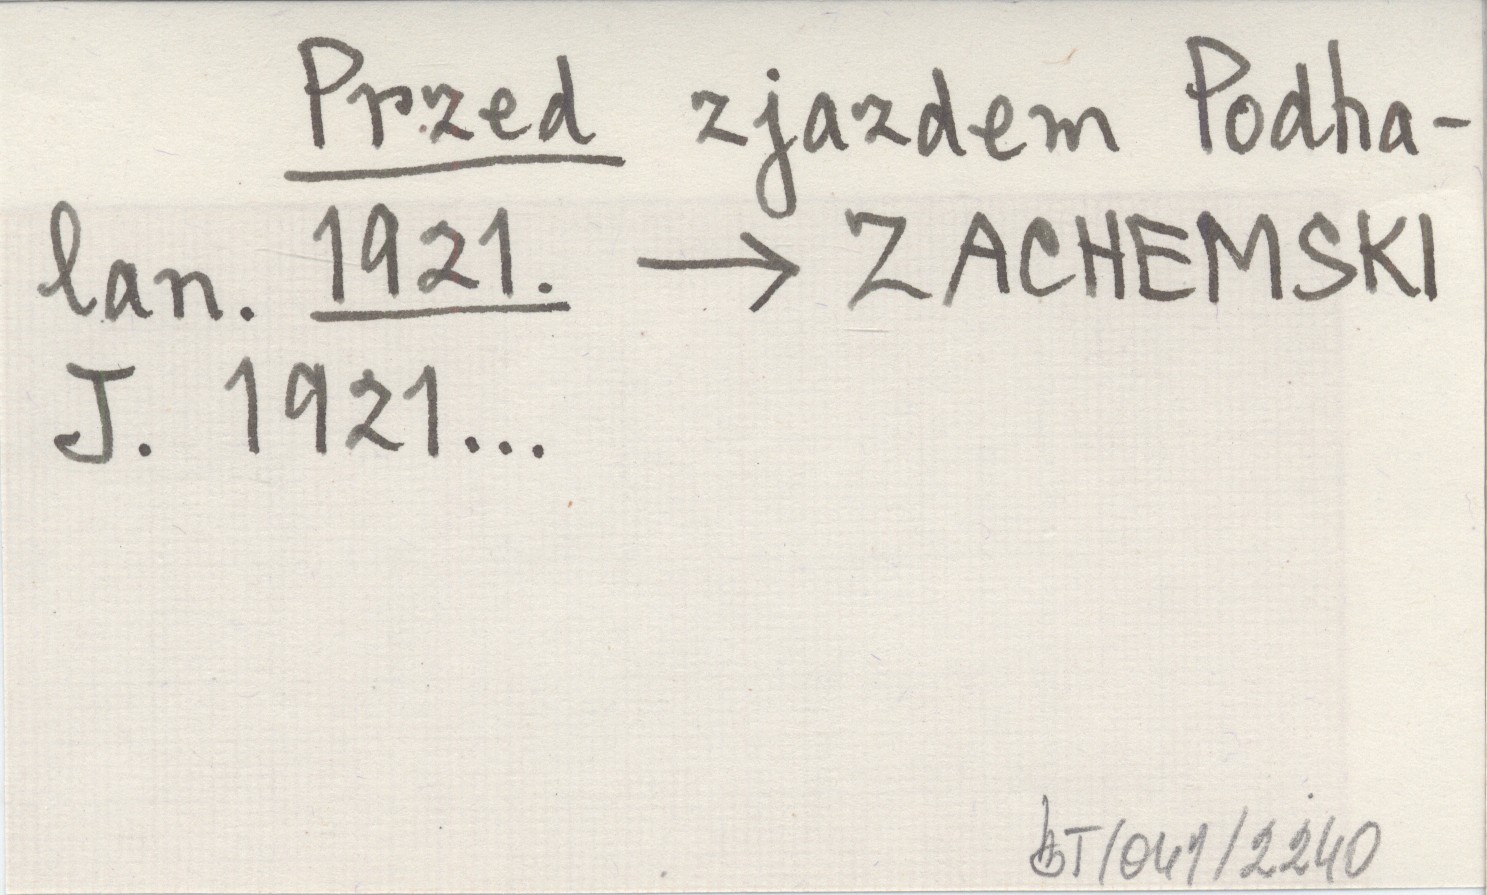 Przed zjazdem Podha-
lan. 1921. → ZACHEMSKI
J. 1921...
BT/041/2240